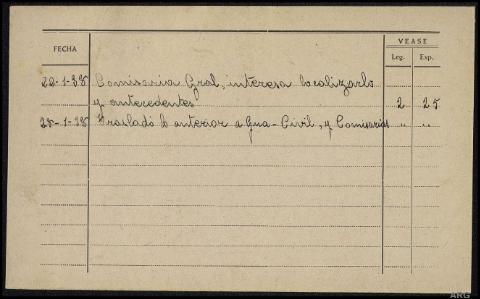 VEASE
FECHA
Leg. Exp.
22-1-38 Comisaria Gral, interesa localizarlo
y antecedentes 2 25
25-1-38 Traslado lo anterior a Gua-Civil, y Comisarias " "
ARG